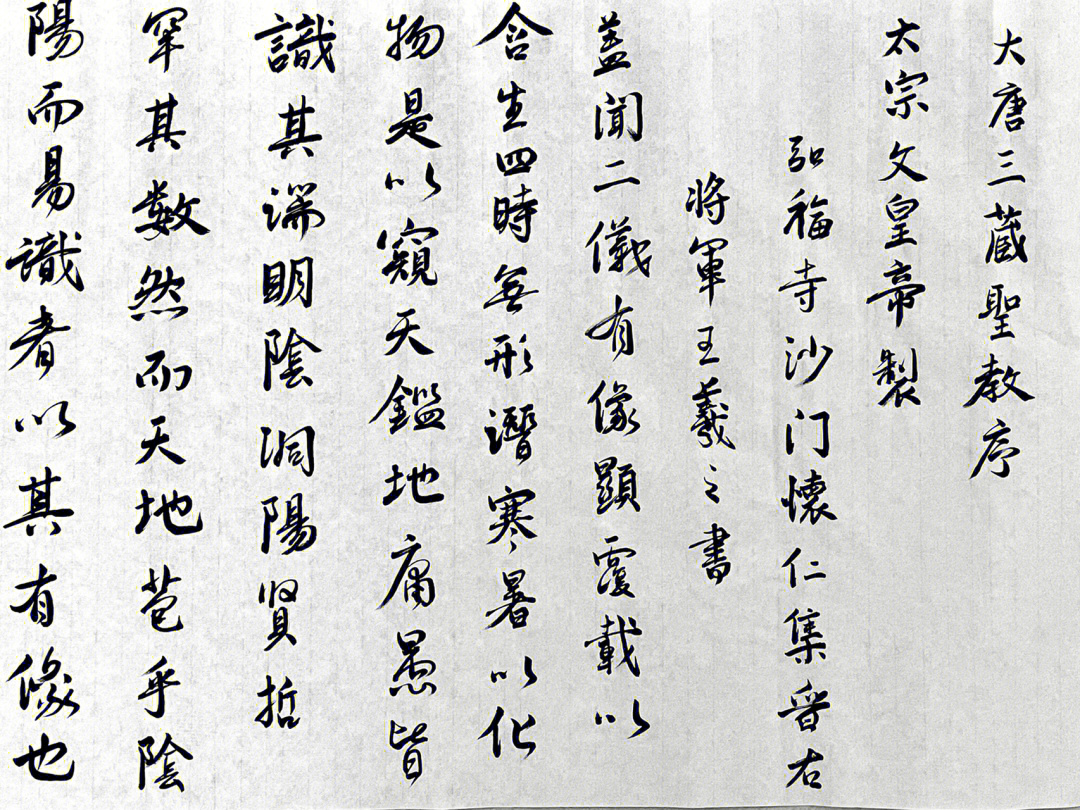 大唐三蔵聖教序
太宗文皇帝製
弘福寺沙门懷仁集晉右
將軍王羲之書
盖聞二儀有像顯覆載以
含生四時無形潛寒暑以化
物是以窺天鑑地庸愚皆
識其端明陰洞陽賢哲
罕其数然而天地苞乎陰
陽而易識者以其有像也